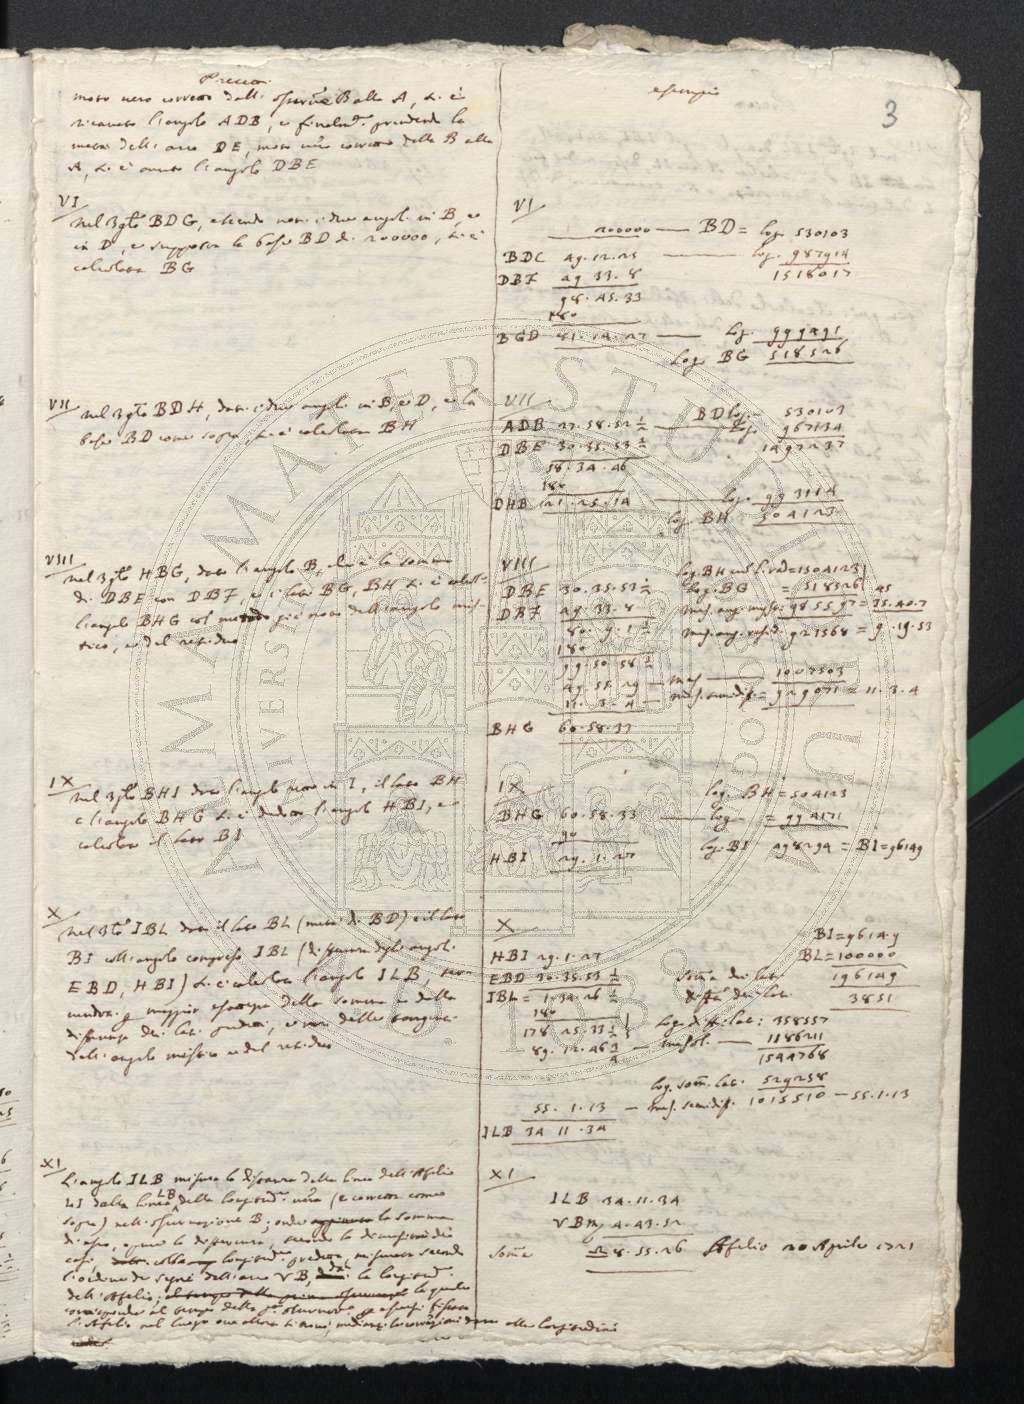 Precetti
esempio
3
moto vero corretto dall'osservne B alla A, si è
ricavato l'angolo ADB, e finalmte prendendo la
metà dell'arco DE, moto vero corretto della B alla
A, si è avuto l'angolo DBE
VI
Nel 3glo BDG, essendo noti i due angoli in B, e
in D, e supposta la base BD di 200000, si è
calcolata BG
VI
200000 — BD = log. 530103
BDC 49.12.25 — log. 987914
DBF 49.33.8 1518017
98.45.33
180
BGD 81.14.27 — log. 999491
log. BG 518526
VII
Nel 3glo BDH, dati i due angoli in B, e D, e la
base BD come sopra, si è calcolata BH
VII
BD log. — 530103
ADB 27.58.52 ½ — log. 967134
DBE 30.35.53 ½ 1497237
58.34.46
180
DHB 121.25.14 — log. 993114
log. BH. 504123
VIII
Nel 3glo HBG, dato l'angolo B, che è la somma
di DBE con DBF, e i lati BG, BH si è calcol-
l'angolo BHG col metodo già noto dell'angolo mis-
tico, e del residuo
VIII
log. BH col rad = 1504123
DBE 30.35.53 ½ log. BG = 518526 45
DBF 49.33.8 mes. ang. myst: 985597 = 35.40.7
80.9.1 ½ mes. ang. resid. 921368 = 9.19.53
180
99.50.58 ½
49.55.29 — mes — 1007503
11.3.4 — mes. semidif. = 929071 = 11.3.4
BHG 60.58.33
IX
Nel 3glo BHI dato l'angolo retto in I, il lato BH
e l'angolo BHG si è dedotto l'angolo HBI, e
calcolato il lato BI
IX
log. BH = 504123
BHG 60.58.33 — log — = 994171
90
HBI 29.1.27 log. BI 498294 = BI = 96149
X
Nel 3glo IBL dato il lato BL (metà di BD) e il lato
BI coll'angolo compreso IBL (differenza degli angoli
EBD, HBI) si è calcolato l'angolo ILB, ser-
vendosi p. maggior esattezza della somma e della
differenza dei lati predetti, e non delle tangenti
dell'angolo mistico e del residuo
X
BI = 96149
HBI 29.1.27 BL = 100000
EBD 30.35.53 ½ Soma dei lati 196149
IBL = 1.34.26 ½ diffa dei lati 3851
180
178.25.33 ½ Log. diff. lat: 358557
89.12.46 ¾ — mesol. — 1186211
1544768
log. som. lat. 529258
55.1.13 — mes. semidif. 1015510 — 55.1.13
ILB 34.11.34
XI
L'angolo ILB misura la distanza della linea dell'Afelio
LI dalla linea LB della longitud. vera (e corretta come
sopra) nell'osservazione B; onde aggiunto la somma
di essi, oppure la differenza, secondo la
casi, colla longitud. predetta, misurata secondo
l'ordine de' segni dall'arco VB, dà la longitud.
dell'Afelio; al tempo della prima osservazne la quale
corrisponde al tempo della pa osservazne
l'Afelio nel luogo ove allora si trovò, alla longitudini
XI
ILB 34.11.34
VBm 4.43.52
Soma 8.55.26 Afelio 20 Aprile 1721